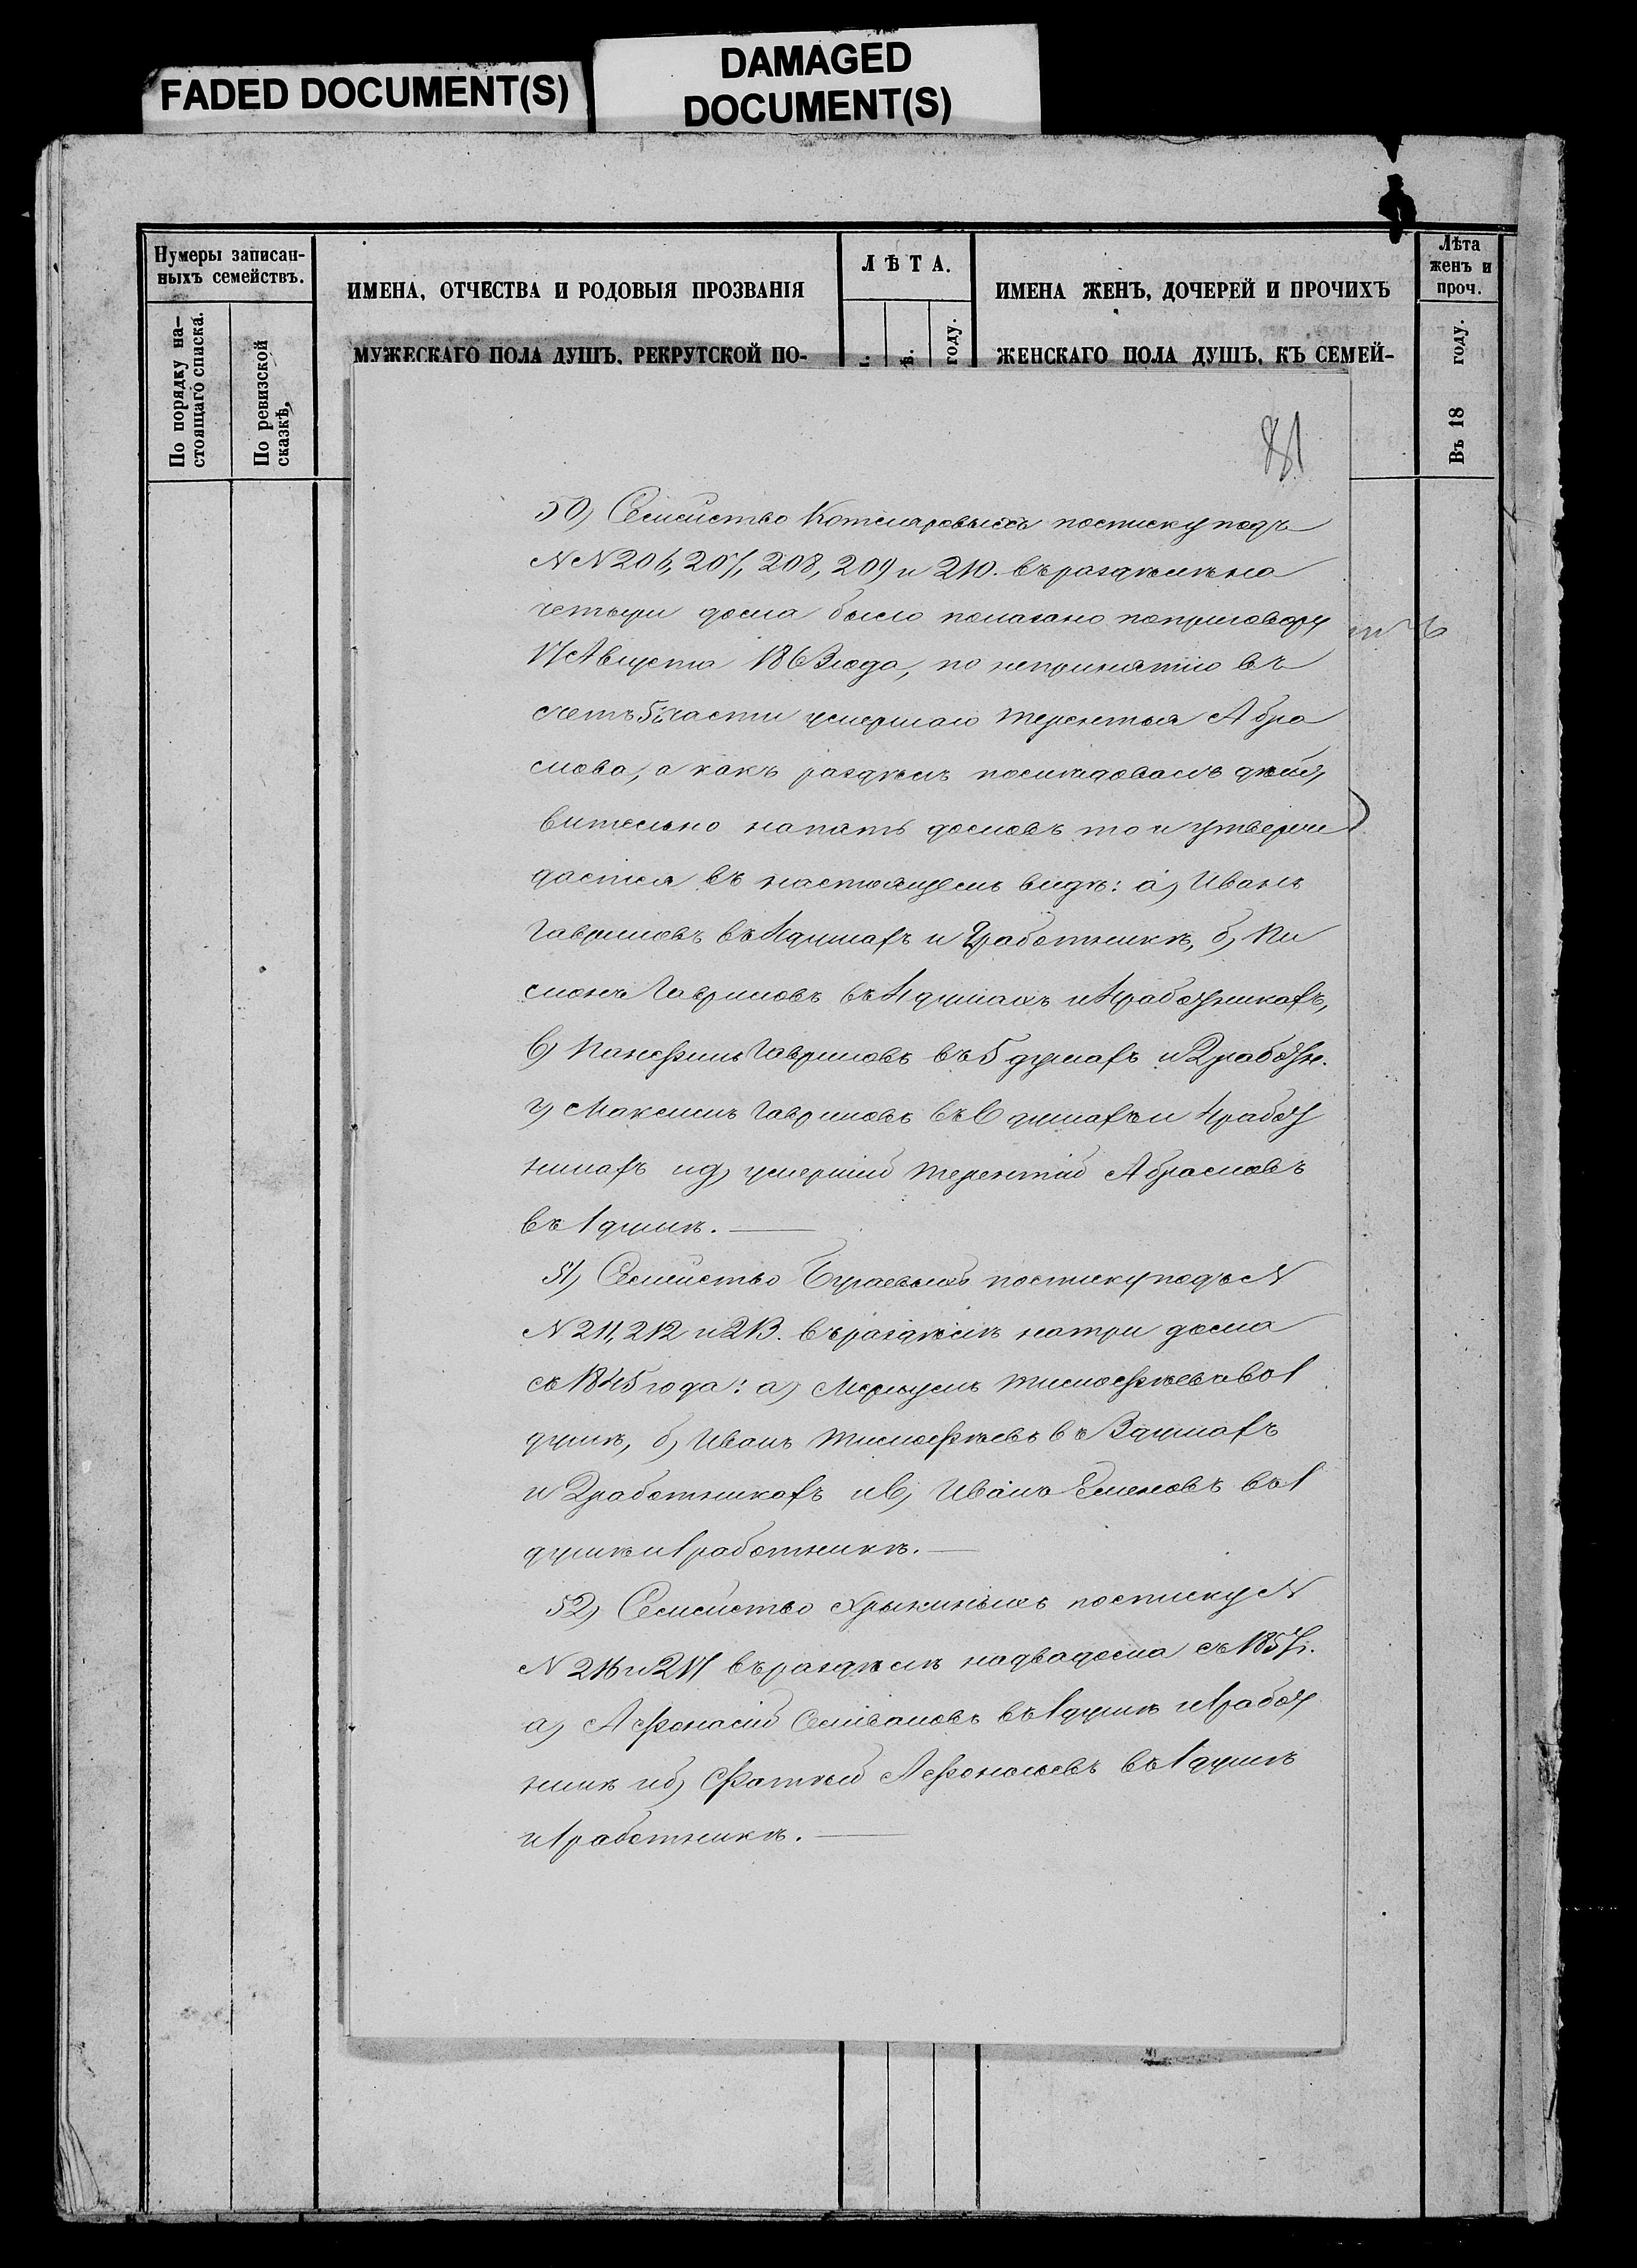 FADED DOCUMENT(S)
DAMAGED
DOCUMENT(S)
Нумеры записан-
ныхъ семействъ.
По порядку на-
стоящаго списка.
По ревизской
сказкѣ,
ИМЕНА, ОТЧЕСТВА И РОДОВЫЯ ПРОЗВАНІЯ
МУЖЕСКАГО ПОЛА ДУШЪ, РЕКРУТСКОЙ ПО-
ЛѢТА.
году.
ИМЕНА ЖЕНЪ, ДОЧЕРЕЙ И ПРОЧИХЪ
ЖЕНСКАГО ПОЛА ДУШЪ, КЪ СЕМЕЙ-
Лѣта
женъ и
проч.
Въ 18 году.
81
50) Семейство Котляровыхъ посписку подъ
NN 206, 207, 208, 209 и 210. въ раздѣлѣ на
четыри дома было показано поприговору
17 Августа 1863 года, по непринятію въ
счетъ 5й части умершаго Терентья Абра
мова, а какъ раздѣлъ послѣдовалъ дѣйст
вительно напять домовъ то и утверж
дается въ настоящемъ видѣ: а) Иванъ
Гавриловъ въ 4 душахъ и работникѣ, б) Пи
монъ Гавриловъ въ 4 душахъ и 4 работникахъ,
в) Гавриловъ въ 5 душахъ и 2 работн.
г) Максимъ Гавриловъ въ 6 душахъ и 4 работ
никахъ и д) умершій Терентій Абрамовъ
въ 1 душѣ.
51) Семейство посписку подъ N
N 211, 212 и 213. въ раздѣлѣ натри дома
съ 1845 года: а) Меркулъ Тимофѣевъ во 1
душѣ, б) Иванъ Тимофѣевъ въ 3 душахъ
и 2 работникахъ и в) Иванъ Семеновъ въ 1
душѣ и 1 работникѣ.
52) Семейство посписку N
N 216 и 217 въ раздѣлѣ надвадома съ 1857 г.
а) Афонасій въ 1 душѣ и 1 работ
никѣ и б) Фатѣй Афонасьевъ въ 1 душѣ
и 1 работникѣ.